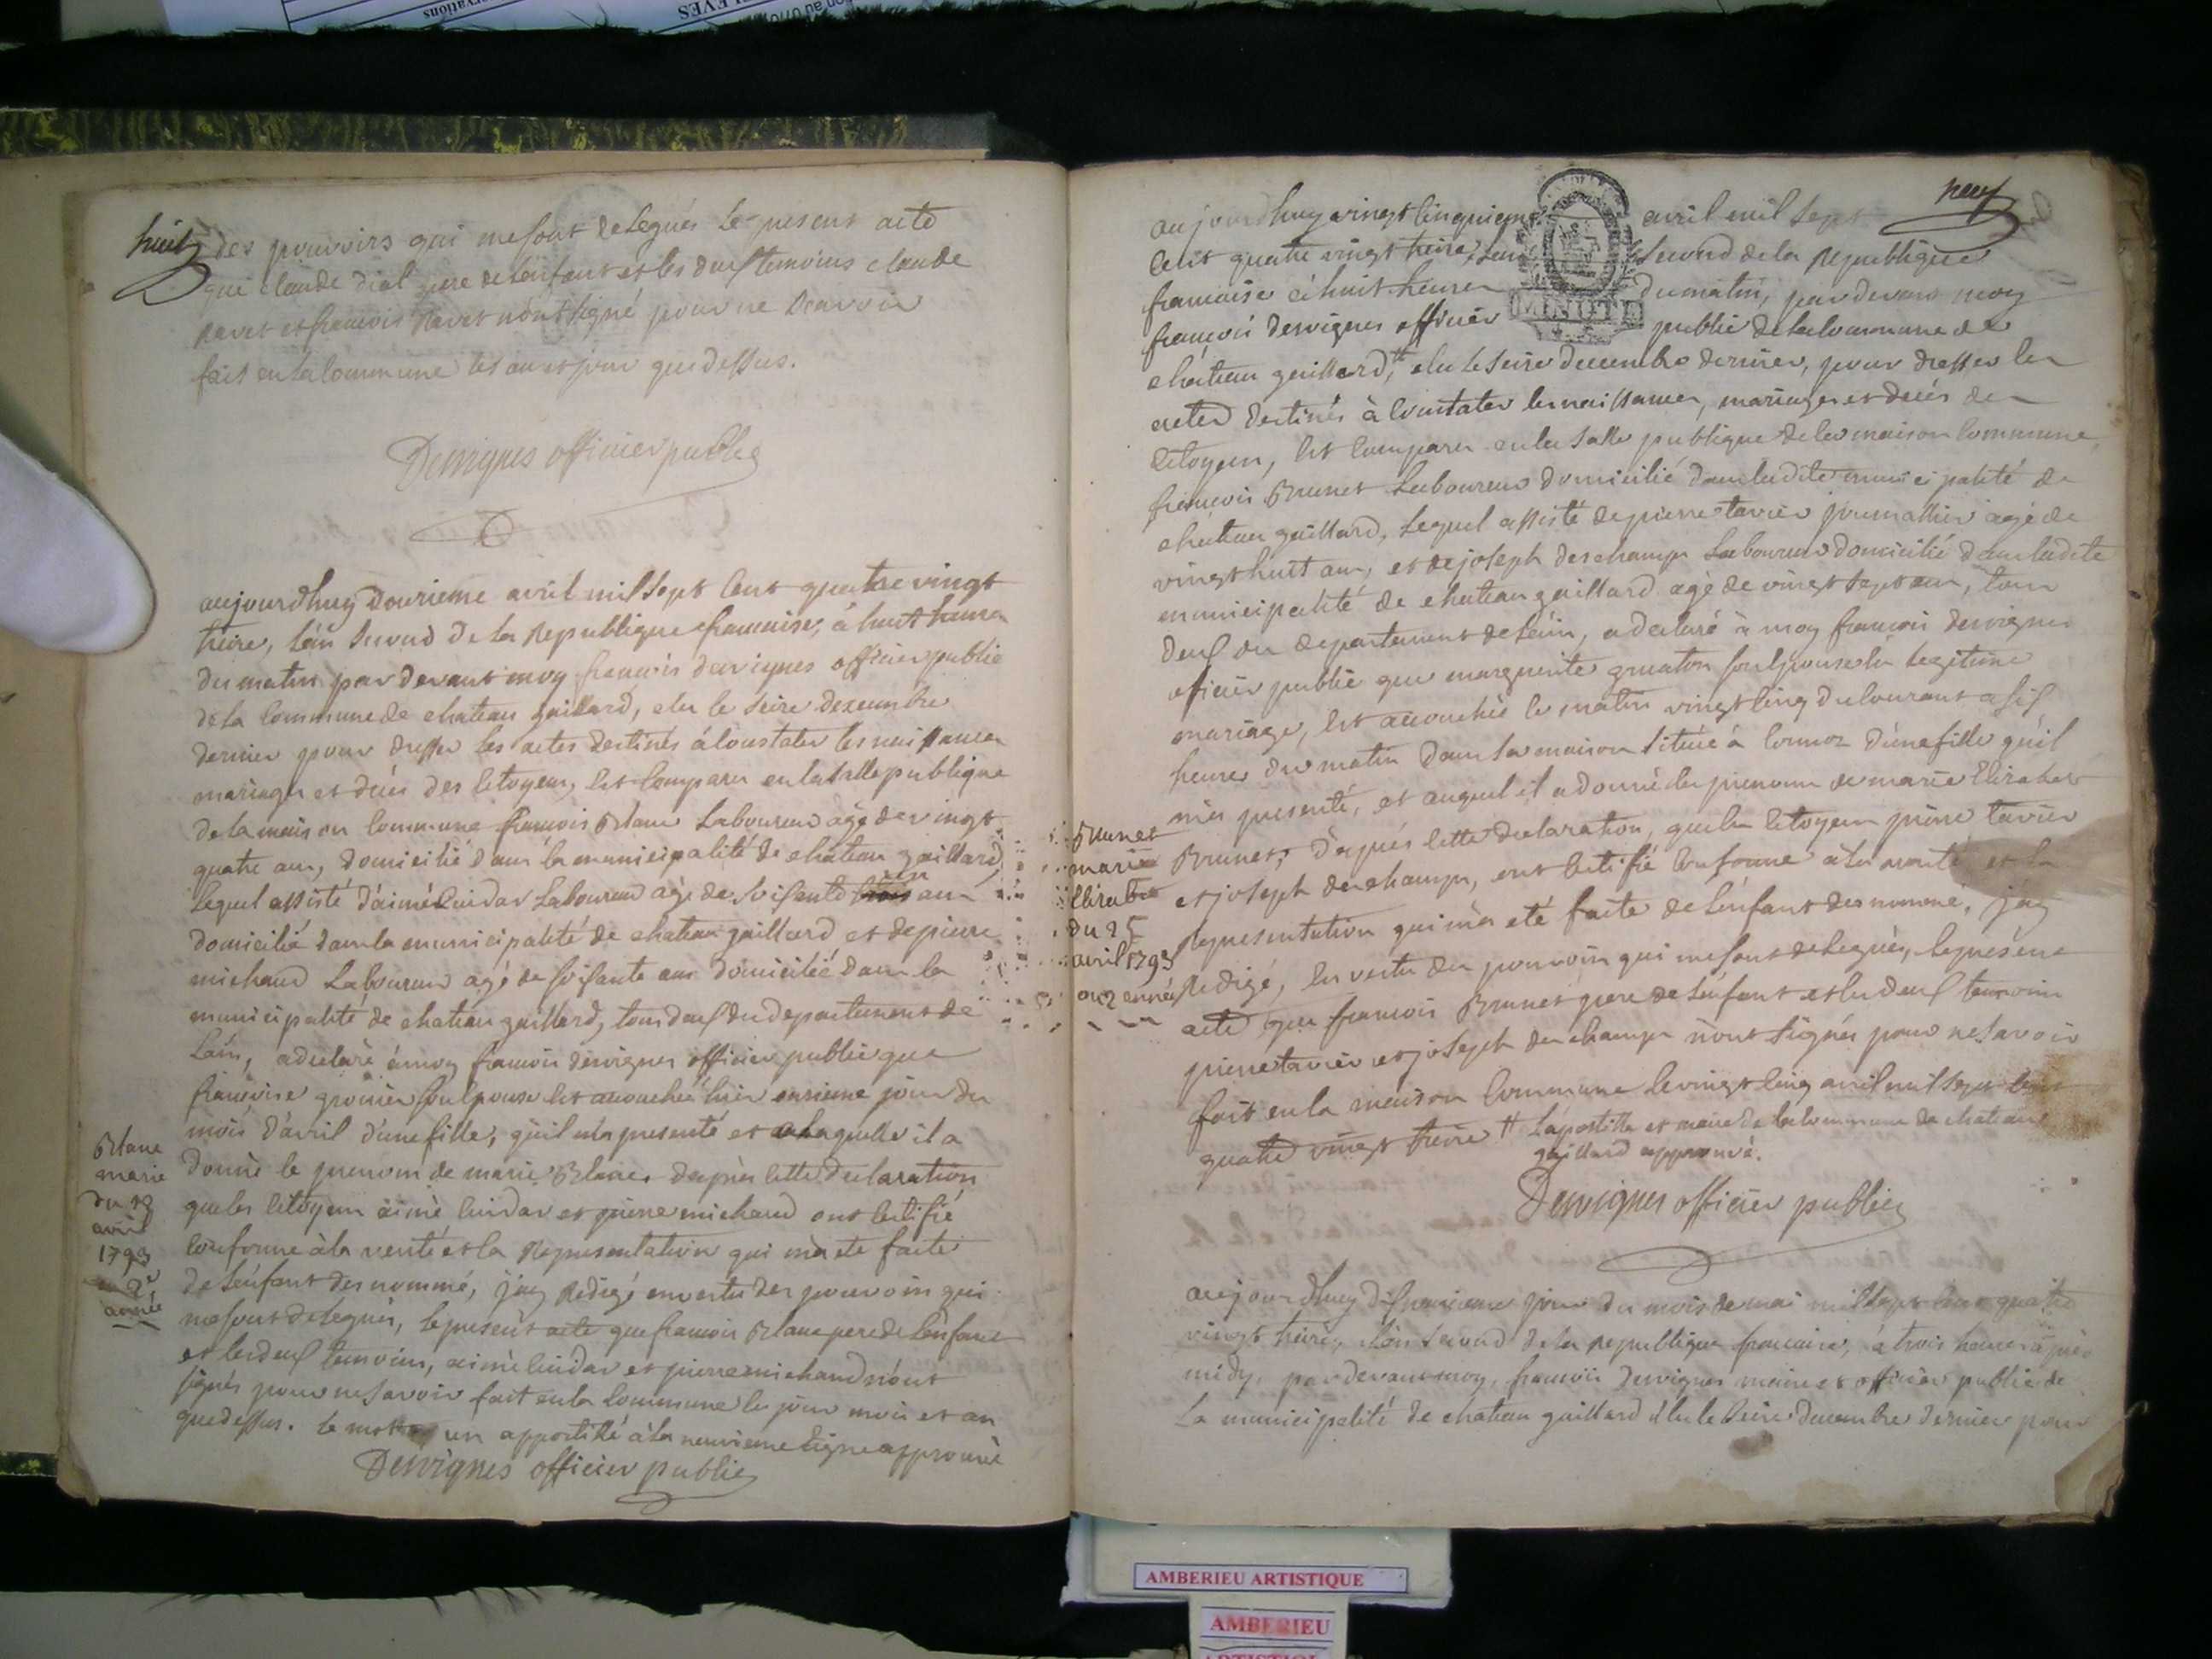 huit
des pouvoirs qui me sont delegués le present acte
que claude dial pere de lénfant et les deuf temoins claude
ravet et francois Ravet nónt signé pour ne scavoir
fait en la commune les an et jour que dessus.
Desvignes officier public
aujourdhuy douzieme avril mil sept cent quatre vingt
treize, lán second de la Republique francaise, à huit heures
du matin par devant moy francois desvignes officier public
de la commune de chateau gaillard, elu le seize dexembre
dernier pour dresser les actes destinés à constater les naissances
mariages et décés des citoyens, est comparu en la salle publique
de la maison commune francois Blanc Laboureur âgé de vingt
quatre ans, domicilié dans la municipalité de chateau gaillard,
Lequel assisté d'aimé Cuidar Laboureur âgé de soisante trois un ans
domicilié dans la municipalité de chateau gaillard et de pierre
michaud Laboureur agé de soisante ans domicilié dans la
municipalité de chateau gaillard, tous deuf du departement de
Láin, a declaré à moy francois desvignes officier public que
francoise gronier son epouse est accouchée hier onzieme jour du
mois d'avril d'une fille, qúil má presenté et a laquelle il a
donné le prenom de marie Blanc, dáprès cette declaration
que les citoyens aimé Cuidar et pierre michaud ont certifié
conforme à la verité et la Representation qui má eté faite
de lénfant denommé, jáy Redigé en vertu des pouvoirs qui
me sont delegués, le present acte que francois Blanc pere de lénfant
et les deuf temoins, aimé Cuidar et pierre michaud nónt
signés pour ne savoir fait en la commune les jour mois et an
que dessus. Le mot un appostillé à la neuvieme ligne approuvé
Desvignes officier public
Blanc
marie
du 12
avril
1793
2e
année
neuf
aujourdhuy vingt cinquieme avril mil sept
cent quatre vingt treize, lan second de la Republique
francaise à huit heures du matin, par devant moy
francois desvignes officier public de la commune de
MINUTE
chateau gaillard,# elu le seize decembre dernier, pour dresser les
actes destinés à constater les naissances, mariages et décés des
citoyens, est comparu en la salle publique de la maison commune,
francois Brunet Laboureur domicilié dans ladite municipalité de
chateau gaillard, Lequel assisté de pierre tavier journallier agé de
vingt huit ans, et de joseph deschamps Laboureur domicilié dans ladite
municipalité de chateau gaillard agé de vingt sept ans, tous
deuf du departement de Láin, a declaré à moy francois desvignes
oficier public que marguerite son epouse en legitime
mariage, est accouchée ce matin vingt cinq du courant a sif
heures du matin dans sa maison située à cormoz d'une fille qúil
má presenté, et auquel il a donné les prenoms de marie Elizabet
Brunet, d'après cette declaration, que les citoyens pierre tavier
et joseph deschamps, ont certifié conforme à la verité et la
Representation qui má eté faite de lénfant denommé, jáy
Redigé, en vertu des pouvoirs qui me sont delegués, le present
acte que francois Brunet pere de lénfant et les deuf temoins
pierre tavier et joseph deschamps nónt signés pour ne savoir
fait en la maison commune le vingt cinq avril mil sept cent
quatre vingt treize # Lápostille et maire de la commune de chateau
gaillard approuvé.
Desvignes officier public
Brunet
marie
Elizabet
du 25
avril 1793
ou 2 année
aujourdhuy disneuvieme jour du mois de mai mil sept cent quatre
vingt treize, lán second de la republique francaise, à trois heures aprés
midy, par devant moy, francois Desvignes maire et officier public de
la municipalité de chateau gaillard élu le seize decembre dernier pour
AMBERIEU ARTISTIQUE
AMBERIEU
ARTISTIQUE